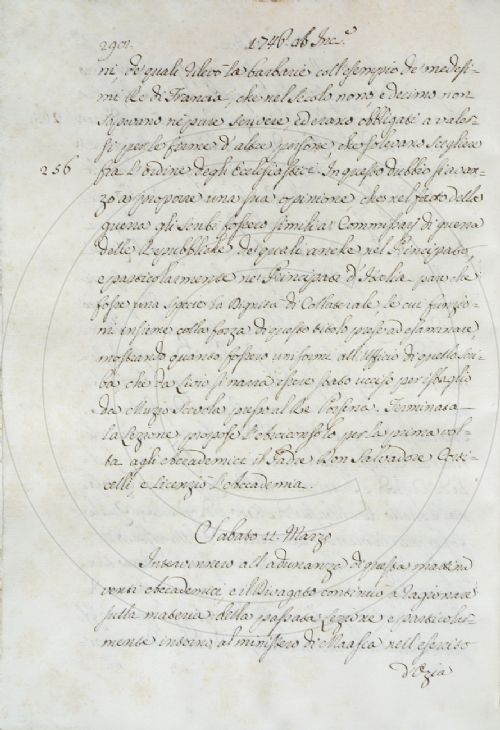 290. 1746 ab Inc.e
ni, de' quali rilevò la barbarie coll'esempio de' medesi-
mi Re di Francia, che nel secolo nono, e decimo non
sapevano neppure scrivere, ed erano obbligati a valer-
si per le firme d'altre persone, che solevano scegliere
256
fra l'ordine degli Ecclesiastici. In questo dubbio si avan-
zò a proporre una sua opinione che nel fatto della
guerra gli scribi fossero simili a' Commissarj di guerra
delle Repubbliche, de' quali anche nel Principato,
e particolarmente ne' Principati d'Italia pare che
fosse una specie la Dignità di Collaterale, le cui funzio-
ni insieme colla forza di questo titolo prese ad esaminare,
mostrando quanto fossero uniformi all'Uffizio di quello scri-
ba che da Livio si narra essere stato ucciso per isbaglio
da Muzio Scevola presso al Re Porsena. Terminata
la Lezione propose l'Arciconsolo per la prima vol-
ta agli Accademici il Padre Don Salvadore Corti-
celli, e licenziò l'Accademia.
Sabato 11. Marzo
Intervennero all'adunanza di questa mattina
venti Accademici, e il Divagato continuò a ragionare
sulla materia della passata Lezione e particolar-
mente intorno al ministero di Maasia nell'esercito
d'Ozia